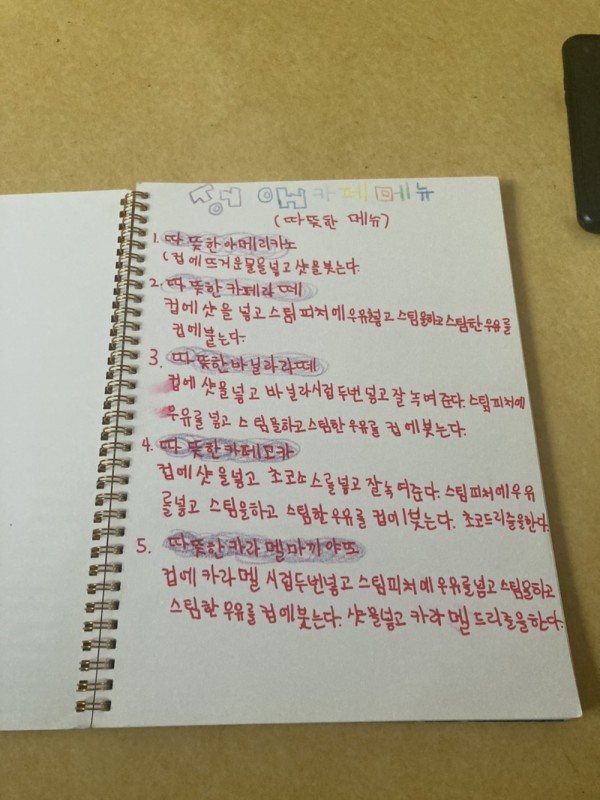 카페메뉴
(따뜻한 메뉴)
1. 따뜻한 아메리카노
(컵에 뜨거운물을 넣고 샷을 붓는다.
2. 따뜻한 카페라떼
컵에 샷을 넣고 스팀피처에 우유를 넣고 스팀을하고 스팀한 우유를
컵에 붙는다.
3. 따뜻한 바닐라라떼
컵에 샷을 넣고 바닐라시럽 두번 넣고 잘 녹여 준다. 스팀피처에
우유를 넣고 스팀을하고 스팀한 우유를 컵에 붓는다.
4. 따뜻한 카페모카
컵에 샷을 넣고 초코소스를 넣고 잘 녹여준다. 스팀피처에 우유
를 넣고 스팀을하고 스팀한 우유를 컵에 붓는다. 초코드리즐을한다.
5. 따뜻한 카라멜마끼야또
컵에 카라멜 시럽두번넣고 스팀피처에 우유를 넣고 스팀을하고
스팀한 우유를 컵에 붓는다. 샷을넣고 카라멜 드리즐을한다.